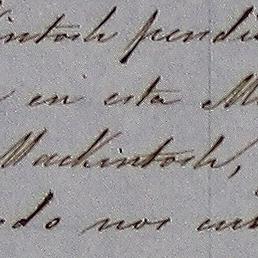 intosh pendi
en esta M
Mackintosh,
do nos